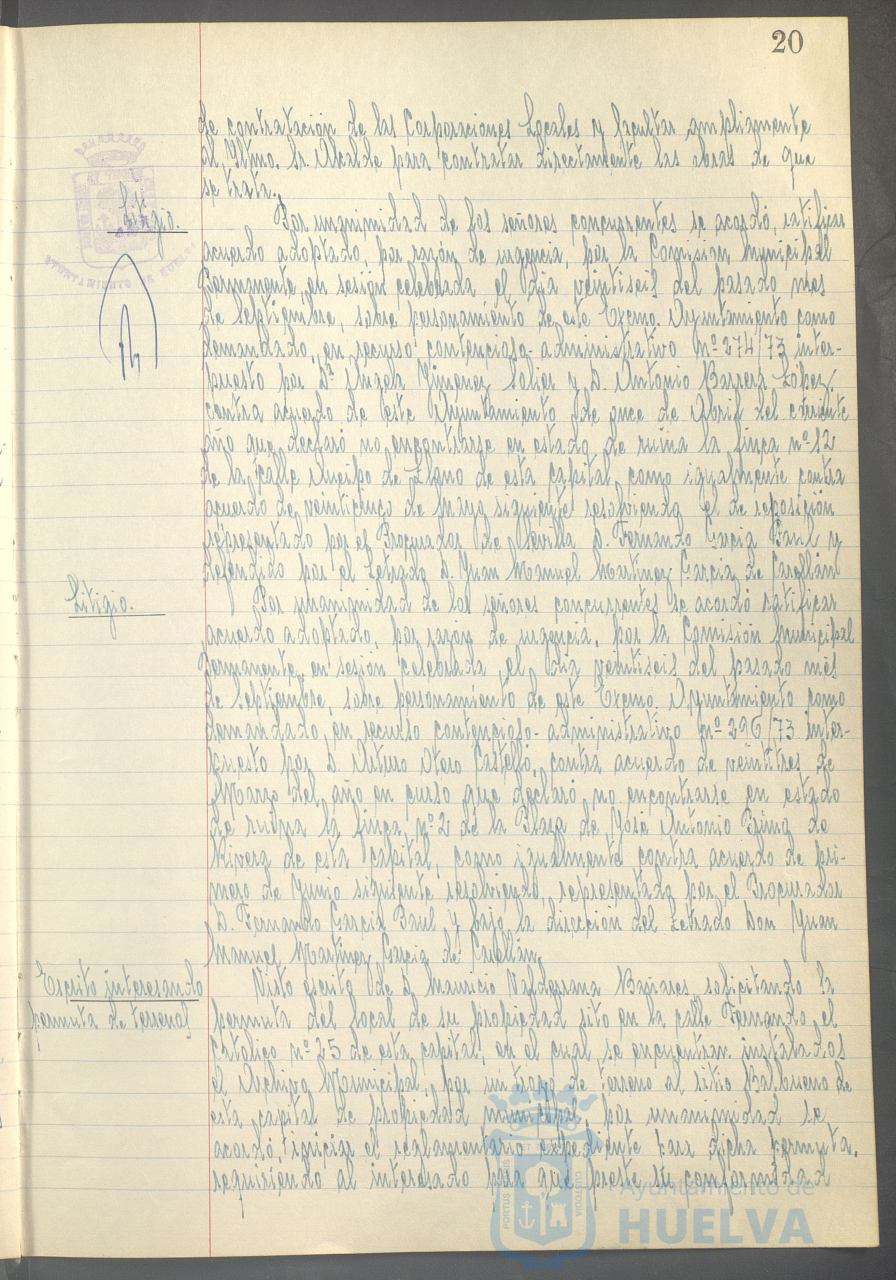 20
de contratación de las Corporaciones Locales y facultar ampliamente
al Iltmo. Sr. Alcalde para contratar directamente las obras de que
se trata.
Litigio.
Por unanimidad de los señores concurrentes se acordó, ratificar
acuerdo adoptado, por razón de urgencia, por la Comisión Municipal
Permanente, en sesión celebrada el día veintiseis del pasado mes
de Septiembre, sobre personamiento de este Excmo. Ayuntamiento como
demandado, en recurso contencioso-administrativo nº 274/73 inter-
puesto por Dª Jiménez y D. Antonio Barrera López,
contra acuerdo de este Ayuntamiento de once de Abril del corriente
año que declaró no encontrarse en estado de ruina la finca nº 12
de la calle Queipo de Llano de esta capital, como igualmente contra
acuerdo de veinticinco de Mayo siguiente resolviendo el de reposición
representado por el Procurador de Sevilla D. Fernando García Paul y
defendido por el Letrado D. Juan Manuel Martínez García de
Litigio.
Por unanimidad de los señores concurrentes se acordó ratificar
acuerdo adoptado, por razón de urgencia, por la Comisión Municipal
Permanente, en sesión celebrada el día veintiseis del pasado mes
de Septiembre, sobre personamiento de este Excmo. Ayuntamiento como
demandado, en recurso contencioso-administrativo nº 296/73 inter-
puesto por D. Arturo Otero Castelló, contra acuerdo de veintitres de
Marzo del año en curso que declaró no encontrarse en estado
de ruina la finca nº 2 de la Plaza de José Antonio Primo de
Rivera de esta capital, como igualmente contra acuerdo de pri-
mero de Junio siguiente resolviendo, representado por el Procurador
D. Fernando García Paul y bajo la dirección del Letrado Don Juan
Manuel Martínez García de
Escrito interesando
permuta de terrenos
Visto escrito de D. Mauricio Bañares, solicitando la
permuta del local de su propiedad sito en la calle Fernando el
Católico nº 25 de esta capital, en el cual se encuentran instalados
el Archivo Municipal, por un trozo de terreno al sitio Balbueno de
esta capital de propiedad municipal, por unanimidad se
acordó iniciar el reglamentario expediente para dicha permuta,
requiriendo al interesado para que preste su conformidad
AYUNTAMIENTO DE HUELVA
PORTUS MARIS ET TERRAE CUSTODIA
Ayuntamiento de
HUELVA